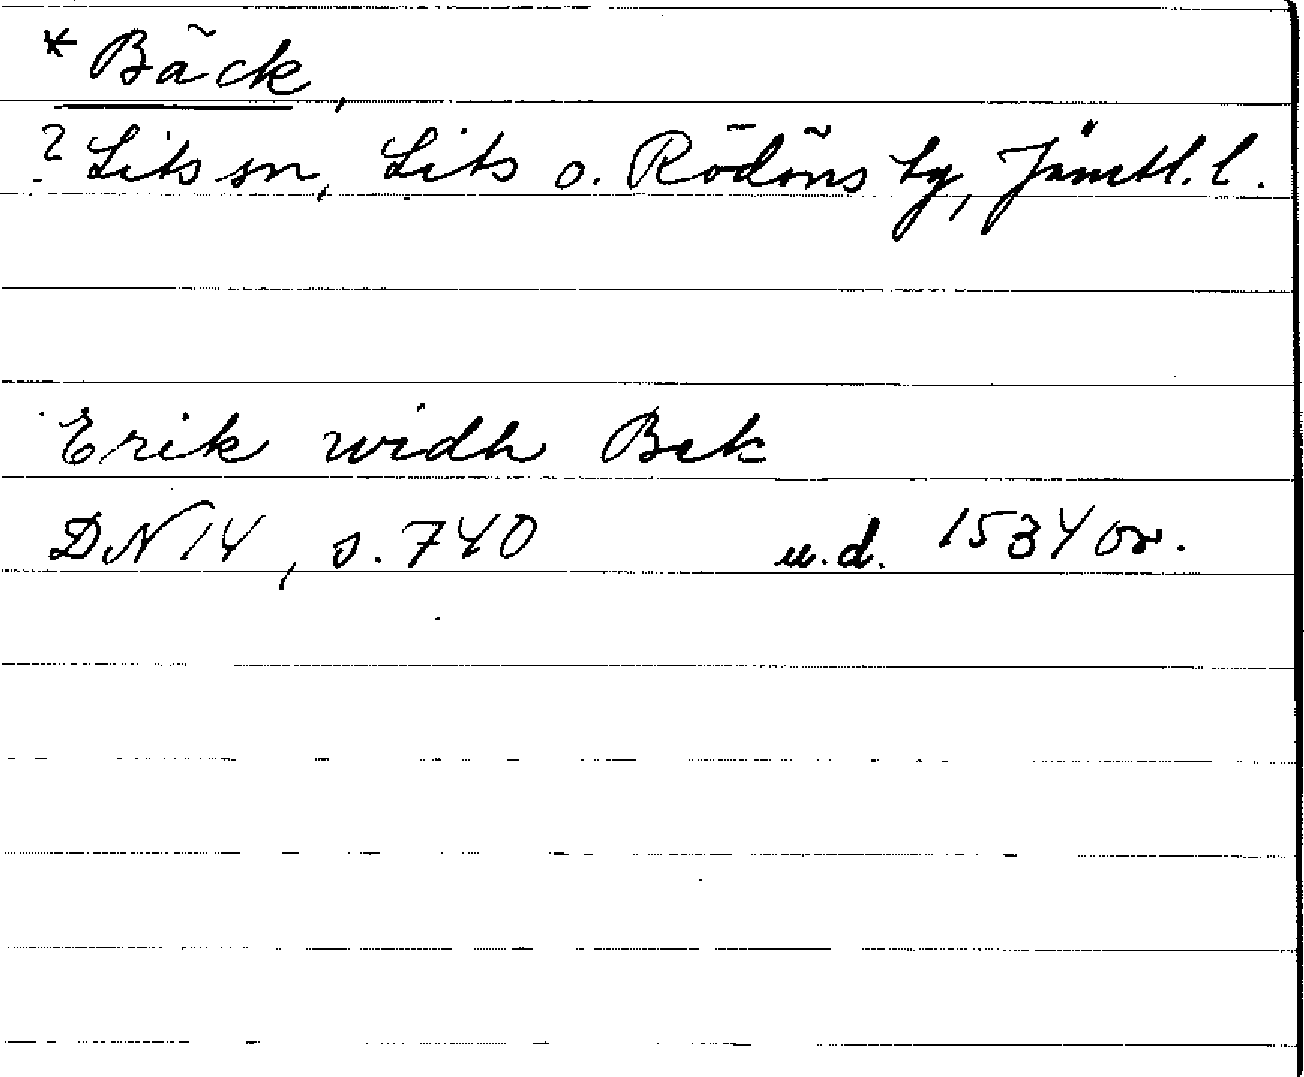 * Bäck,
? Lits sn, Lits o. Rödöns tg, Jämtl. l.
Erik widh Bek
DN 14, s. 740 u.d. 1534 or.